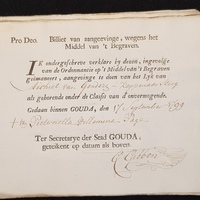 Pro Deo. Billiet van aangeevinge, wegens het
Middel van 't Begraven.
IK ondergeschreve verklare by deezen, ingevolge
van de Ordonnantie op 't Middel van 't Begraven
geëmaneert, aangevinge te doen van het Lyk van
als gehoorende onder de Classis van d'onvermogende.
Gedaan binnen GOUDA, den 17 September 1799
Ter Secretarye der Stad GOUDA,
getekent op datum als boven.